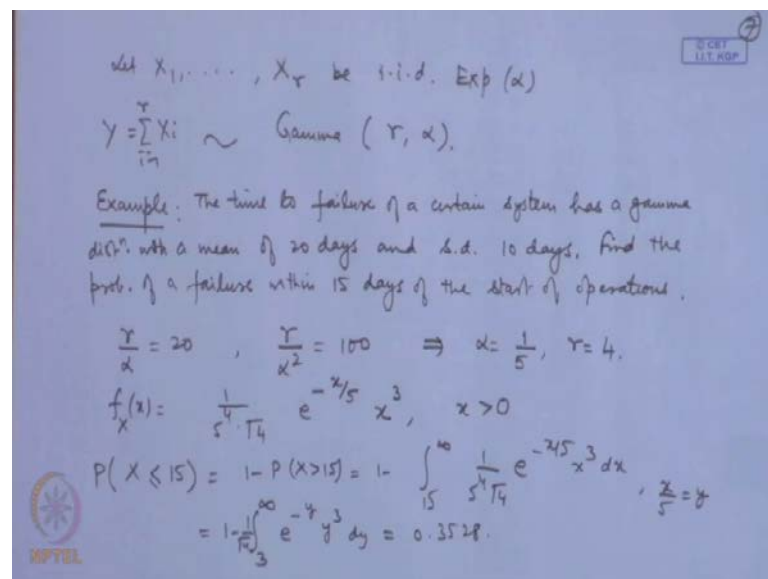 7
© CET
I.I.T. KGP
Let X₁, ....., Xᵣ be i.i.d. Exp (α)
Y = ∑ᵢ₌₁ʳ Xi ~ Gamma ( r, α ).
Example: The time to failure of a certain system has a gamma
distⁿ. with a mean of 20 days and s.d. 10 days. Find the
prob. of a failure within 15 days of the start of operations.
r/α = 20 , r/α² = 100 ⇒ α = 1/5, r = 4.
f_X(x) = 1/(5⁴·Γ4) e^(-x/5) x³, x > 0
P( X ≤ 15) = 1- P (X > 15) = 1- ∫₁₅^∞ 1/(5⁴Γ4) e^(-x/5) x³ dx , x/5 = y
= 1 - 1/Γ4 ∫₃^∞ e^(-y) y³ dy = 0.3528.
NPTEL